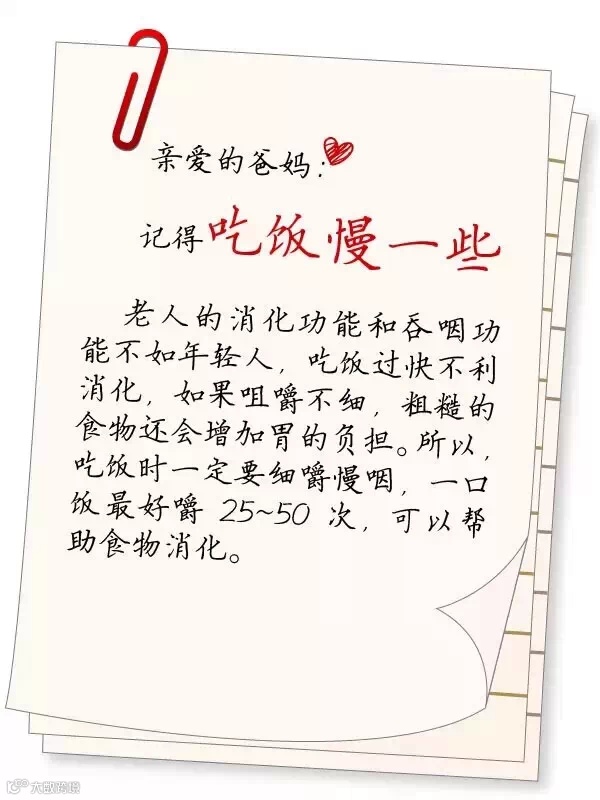 亲爱的爸妈：
记得吃饭慢一些
老人的消化功能和吞咽功
能不如年轻人，吃饭过快不利
消化，如果咀嚼不细，粗糙的
食物还会增加胃的负担。所以，
吃饭时一定要细嚼慢咽，一口
饭最好嚼 25~50 次，可以帮
助食物消化。